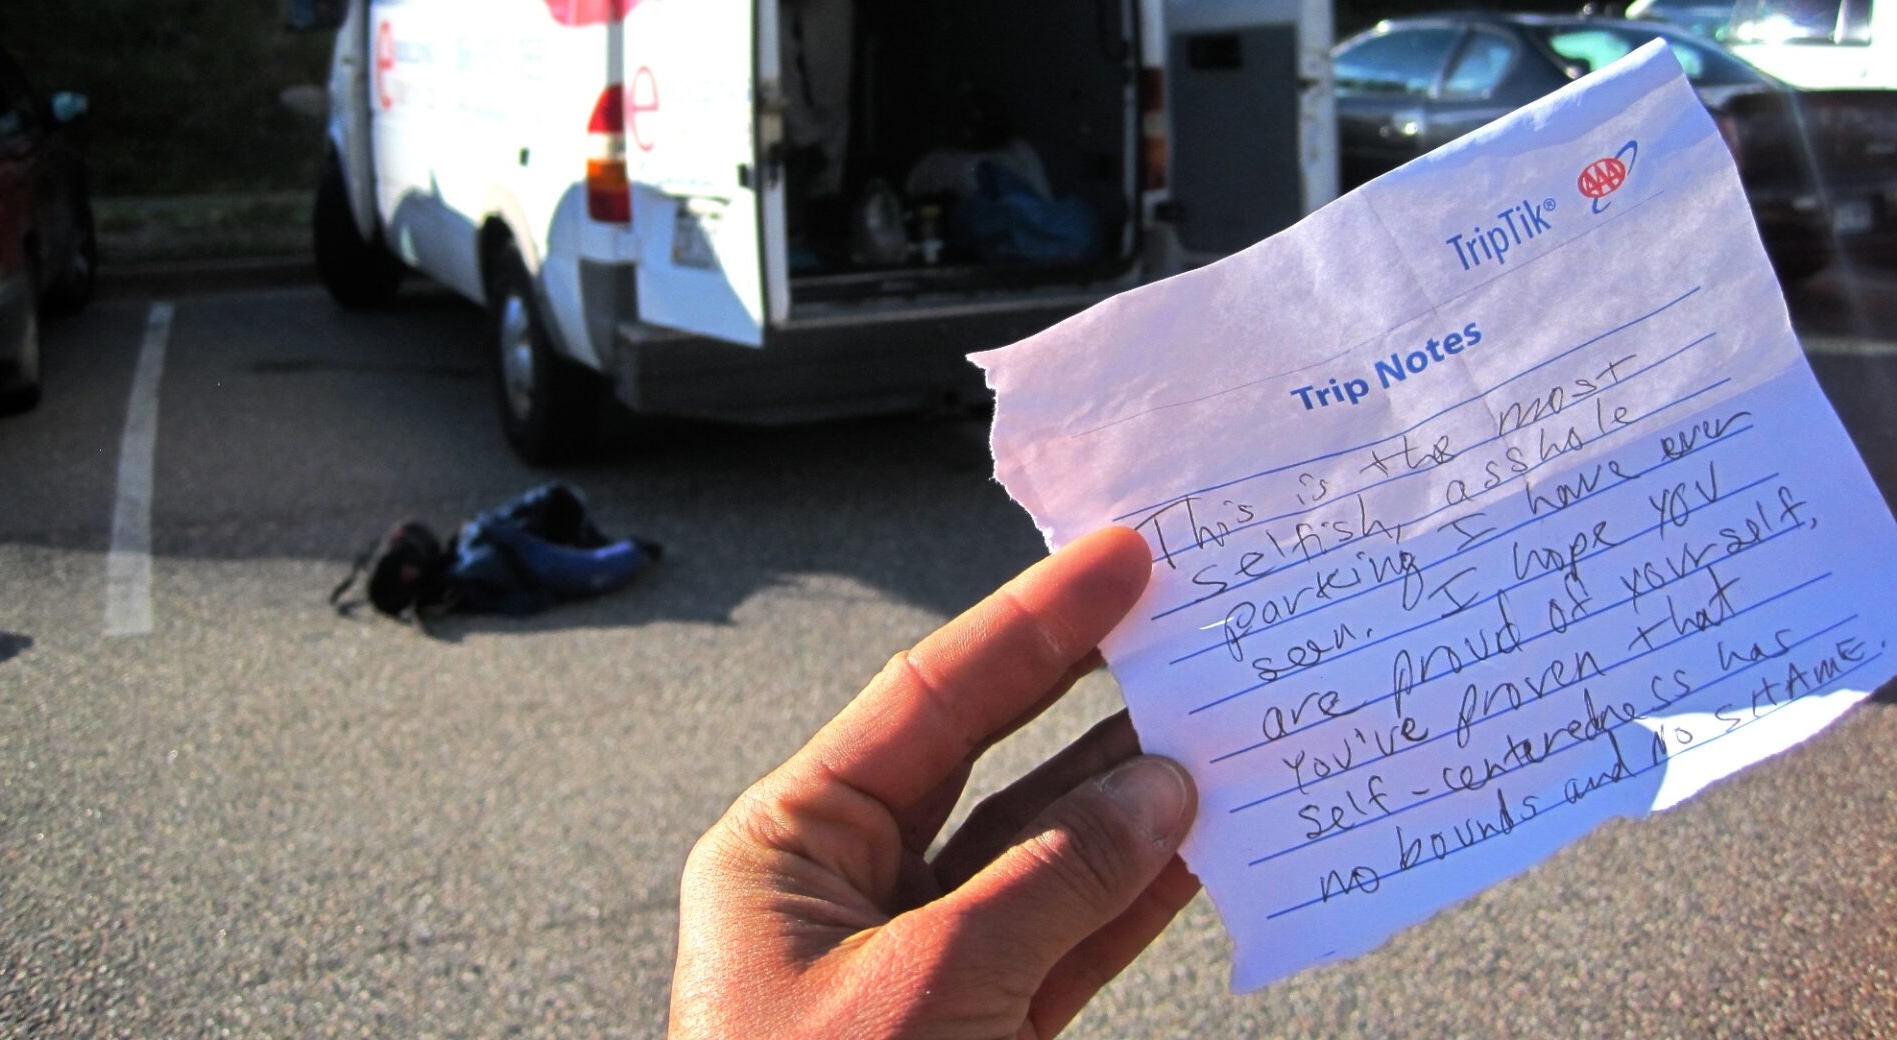 e
e
AAA
TripTik®
Trip Notes
This is the most
selfish, asshole
parking I have ever
seen. I hope you
are proud of yourself,
You've proven that
self-centeredness has
no bounds and No SHAME.